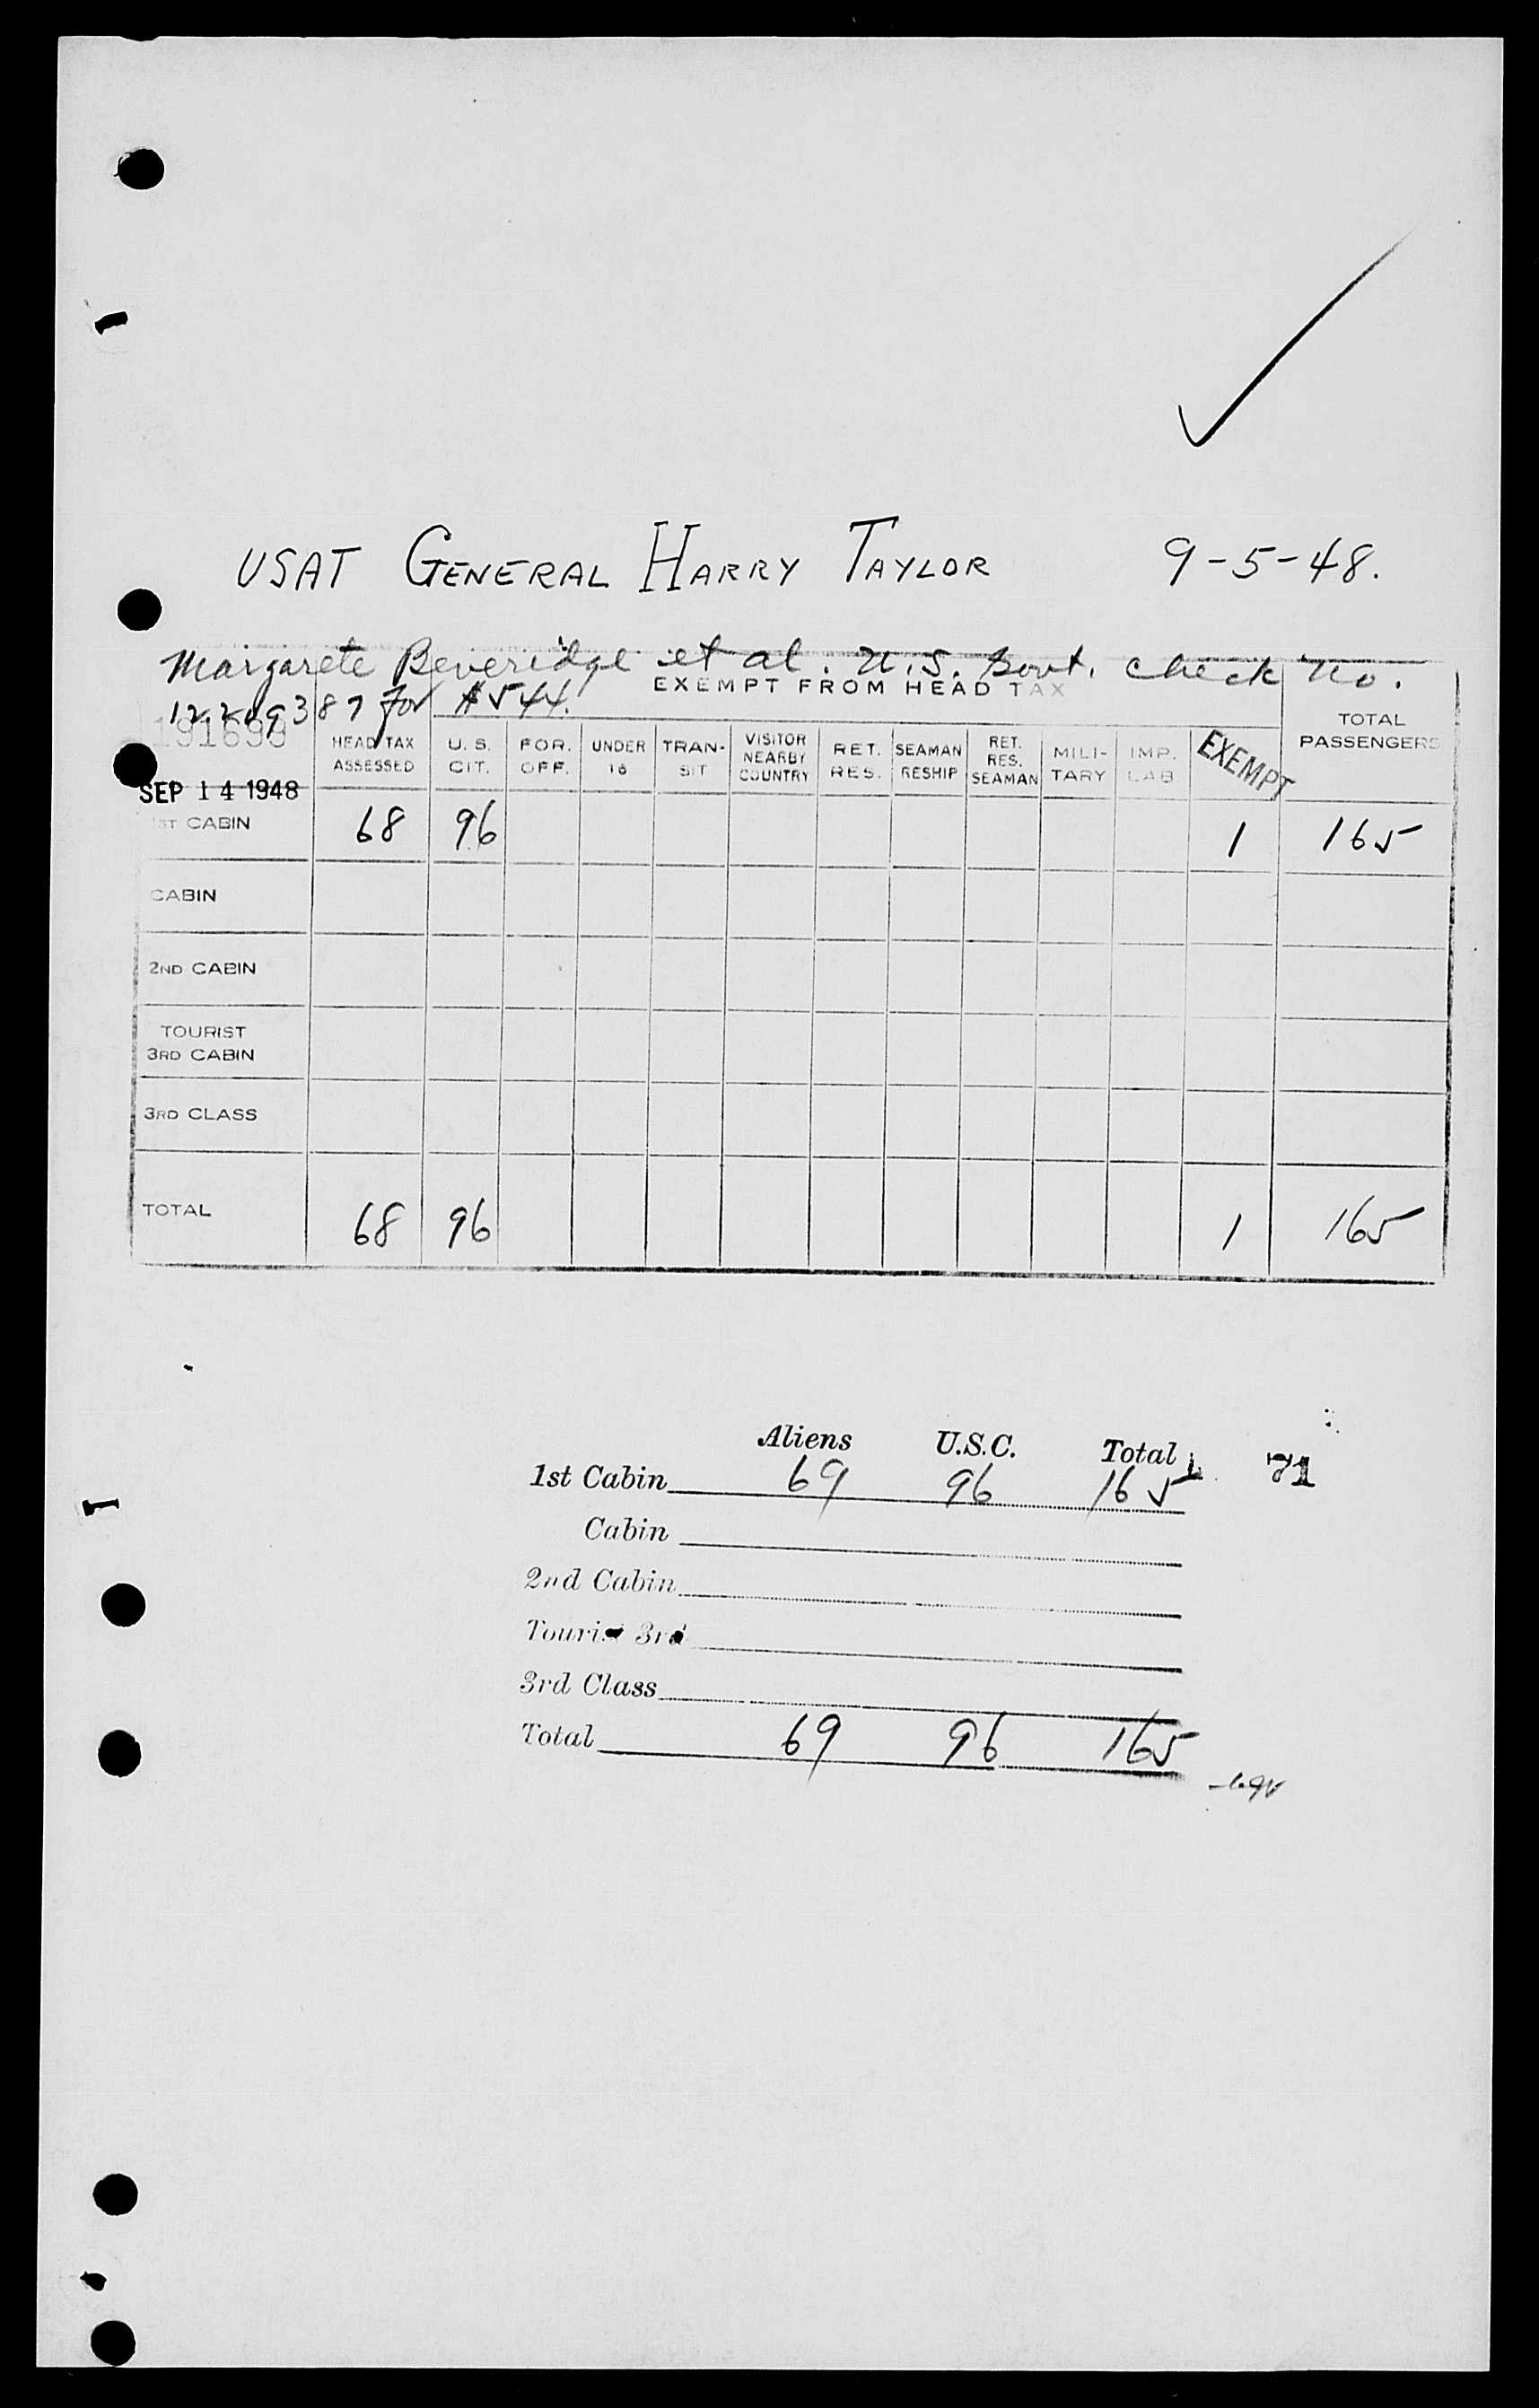 USAT GENERAL HARRY TAYLOR 9-5-48.
Margarete Beveridge et al. U.S. Govt. check no.
12209387 for $544.
EXEMPT FROM HEAD TAX
HEAD TAX ASSESSED U.S. CIT. FOR. OFF. UNDER 16 TRAN-SIT VISITOR NEARBY COUNTRY RET. RES. SEAMAN RESHIP RET. RES. SEAMAN MILI-TARY IMP. LAB EXEMPT TOTAL PASSENGERS
SEP 14 1948
1ST CABIN 68 96 1 165
CABIN
2ND CABIN
TOURIST
3RD CABIN
3RD CLASS
TOTAL 68 96 1 165
Aliens U.S.C. Total 71
1st Cabin 69 96 165
Cabin
2nd Cabin
Tourist 3rd
3rd Class
Total 69 96 165